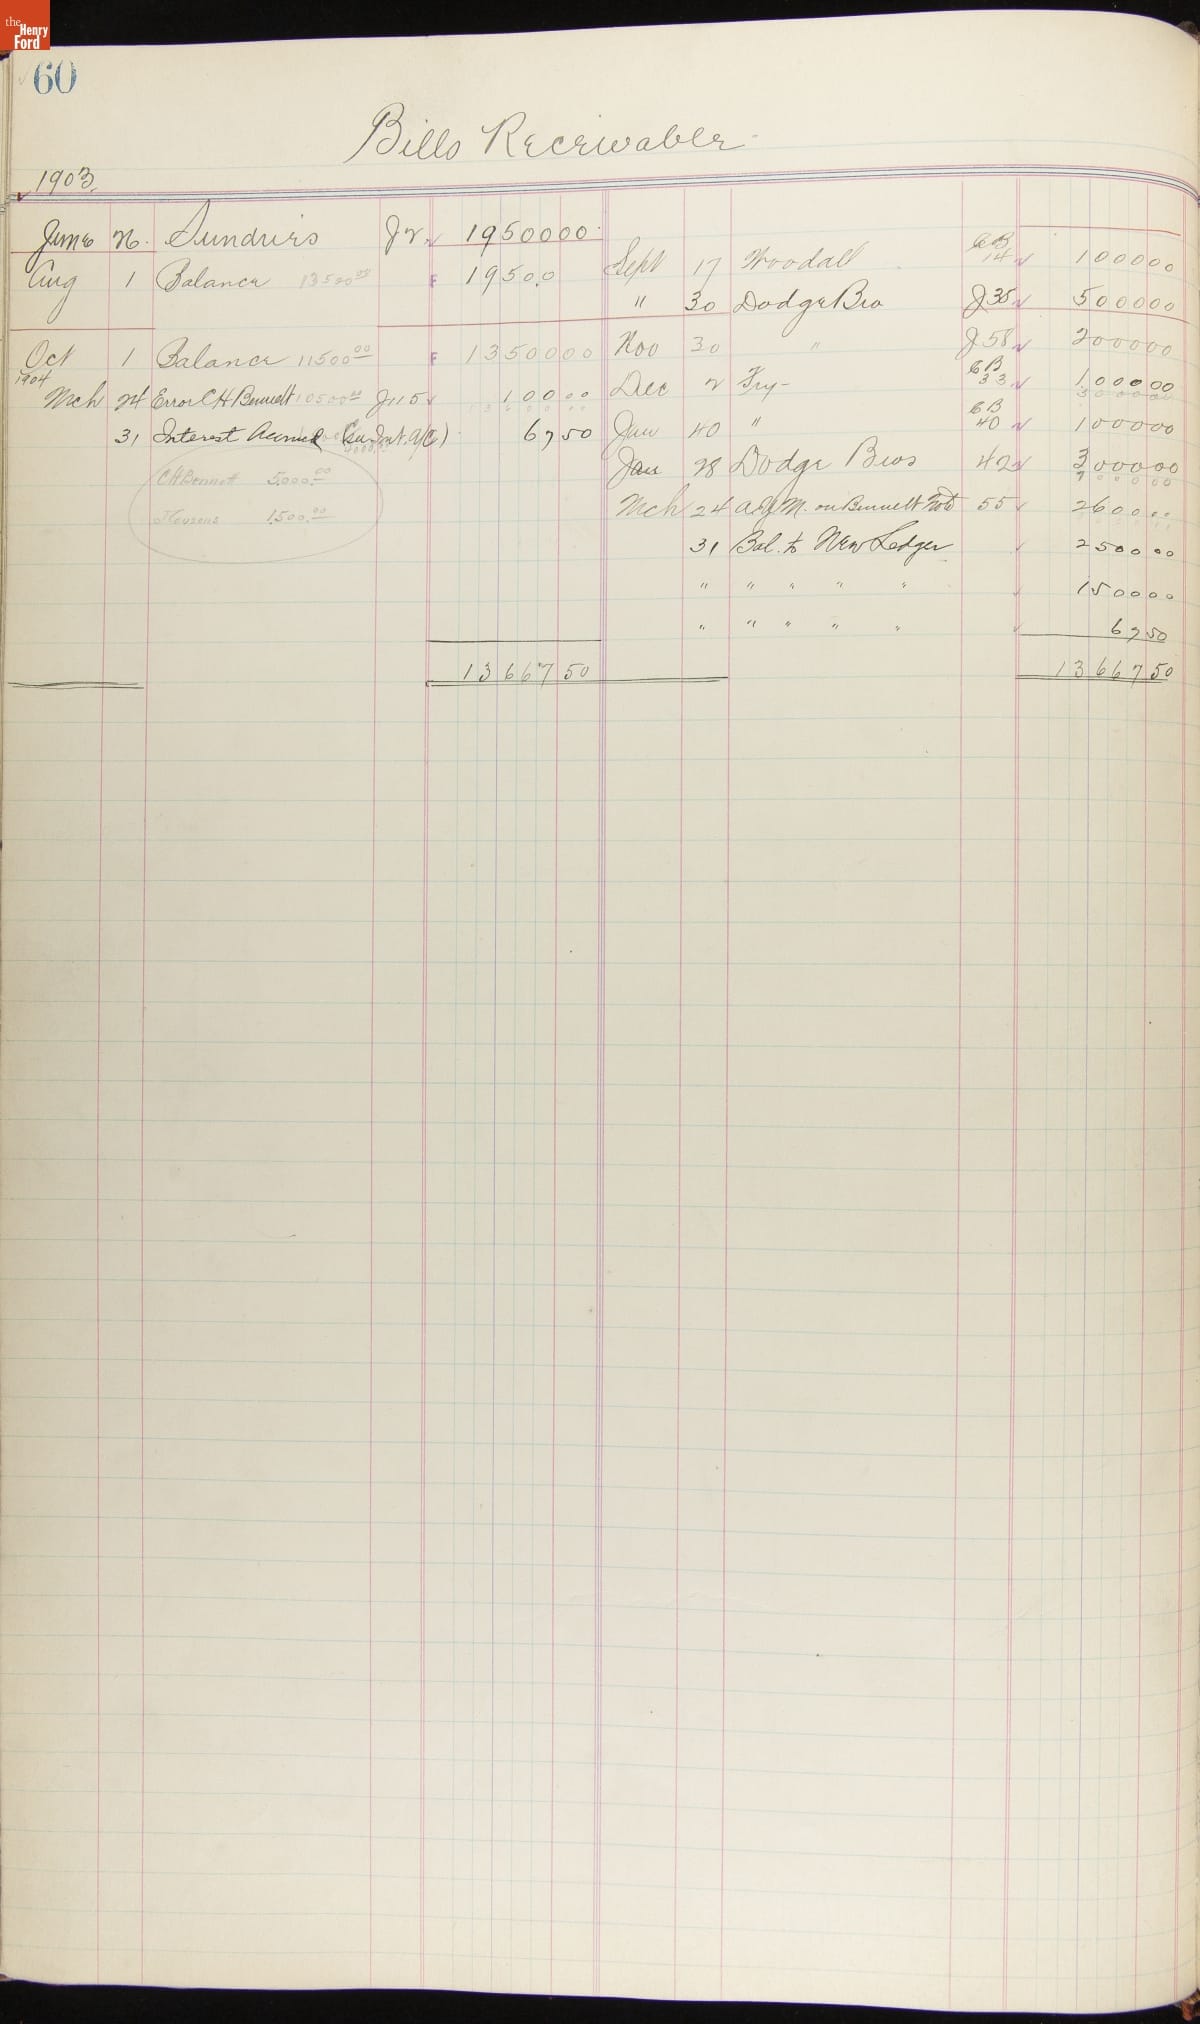 the
Henry
Ford
60
Bills Receivable
1903
June 26. Sundries J2 1950000
Aug 1 Balance 1350000 F 19500
Sept 17 Woodall CB 14 100000
" 30 Dodge Bro J35 500000
Oct 1 Balance 1150000 F 1350000
Nov 30 " J58 200000
1904
Mch 24 Error C H Bennett 1050000 J115 10000
Dec 2 Fry - CB 33 100000
31 Interest Accrued Int. A/C) 6750
Jan " CB 40 100000
C H Bennett 5000.00
Jan 28 Dodge Bros 42 300000
1500.00
Mch 24 A.Y.M. on Bennett Note 55 260000
31 Bal. to New Ledger 250000
" " " " " 150000
" " " " " 6750
1366750 1366750